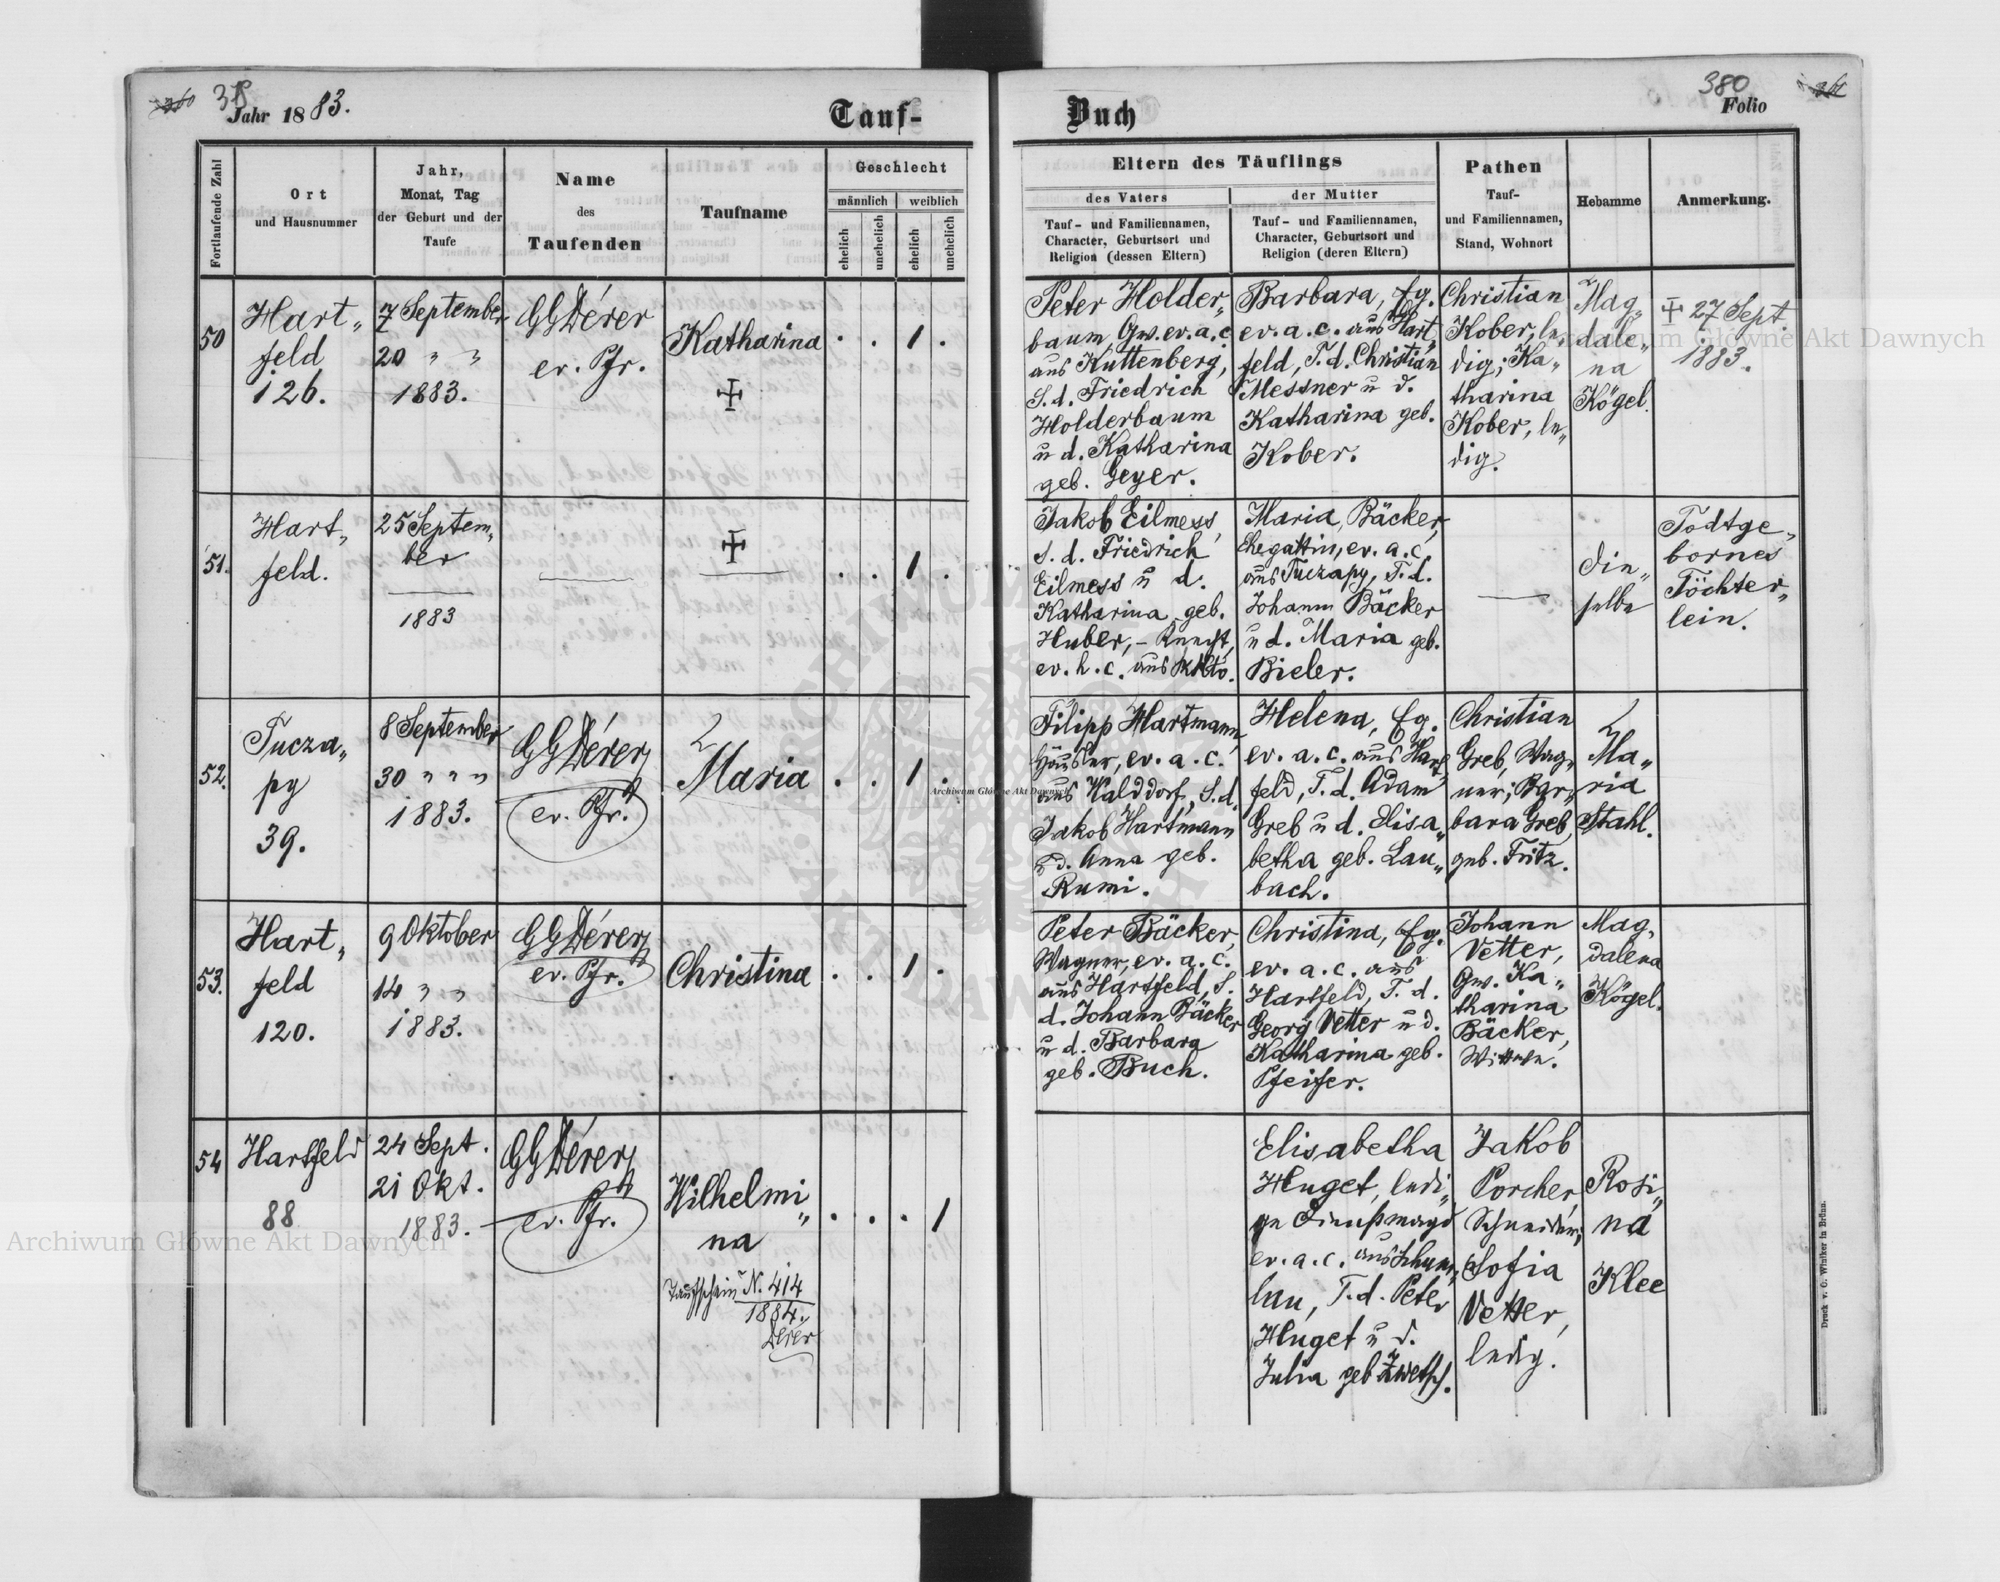 Jahr 1883.
Tauf-
Buch
380
Folio
Fortlaufende Zahl
Ort
und Hausnummer
Jahr,
Monat, Tag
der Geburt und der
Taufe
Name
des
Taufenden
Taufname
Geschlecht
männlich
weiblich
ehelich
unehelich
ehelich
unehelich
Eltern des Täuflings
des Vaters
der Mutter
Tauf- und Familiennamen,
Character, Geburtsort und
Religion (dessen Eltern)
Tauf- und Familiennamen,
Character, Geburtsort und
Religion (deren Eltern)
Pathen
Tauf-
und Familiennamen,
Stand, Wohnort
Hebamme
Anmerkung.
50
Hart„
feld
126.
7 September
20 „ „
1883.
GGDérer
ev. Pfr.
Katharina
. . 1 .
Peter Holder„
baum, Gw. ev. a. c.
aus Kuttenberg,
S. d. Friedrich
Holderbaum
u d. Katharina
geb. Geyer.
Barbara, Eg.
ev. a. c. aus Hart„
feld, T. d. Christian
Messner u d.
Katharina geb.
Kober.
Christian
Kober, le„
dig; Ka„
tharina
Kober, le„
dig.
Mag„
dale„
na
Kögel.
27 Sept.
1883.
51.
Hart„
feld.
25 Septem„
ber
1883
. . 1 .
Jakob Eilmess,
S. d. Friedrich
Eilmess u d.
Katharina geb.
Huber, – Knecht,
ev. h. c. aus
Maria, Bäcker,
Ehegattin, ev. a. c.
aus Tuczapy, T. d.
Johann Bäcker
u d. Maria geb.
Bieler.
Die„
selbe
Todtge„
bornes
Töchter„
lein.
52.
Tucza„
py
39.
8 September
30 „ „ „
1883.
GGDérer
ev. Pfr.
Maria
. . 1 .
Filipp Hartmann,
Häusler, ev. a. c.
aus Walddorf, S. d.
Jakob Hartmann
u d. Anna geb.
Rumi.
Helena, Eg.
ev. a. c. aus Hart„
feld, T. d. Adam
Greb u d. Elisa„
betha geb. Lau„
bach.
Christian
Greb, Wag„
ner; Bar„
bara Greb,
geb. Fritz.
Ma„
ria
Stahl.
53.
Hart„
feld
120.
9 Oktober
14 „ „
1883.
GGDérer
ev. Pfr.
Christina
. . 1 .
Peter Bäcker,
Wagner, ev. a. c.
aus Hartfeld, S.
d. Johann Bäcker
u d. Barbara
geb. Buch.
Christina, Eg.
ev. a. c. aus
Hartfeld, T. d.
Georg Vetter u d.
Katharina geb.
Pfeifer.
Johann
Vetter,
Gw. Ka„
tharina
Bäcker,
Wittwe.
Mag„
dalena
Kögel.
54
Hartfeld
88
24 Sept.
21 Okt.
1883.
GGDérer
ev. Pfr.
Wilhelmi„
na
Taufschein N. 414
1884.
Dérer
. . . 1
Elisabetha
Huget, ledi„
ge Dienstmagd
ev. a. c. aus Schum„
lau, T. d. Peter
Huget u d.
Julia geb Zwetsch.
Jakob
Porcher
Schneider;
Sofia
Vetter,
ledig.
Rosi„
na
Klee
Druck v. C. Winiker in Brünn.
Archiwum Główne Akt Dawnych